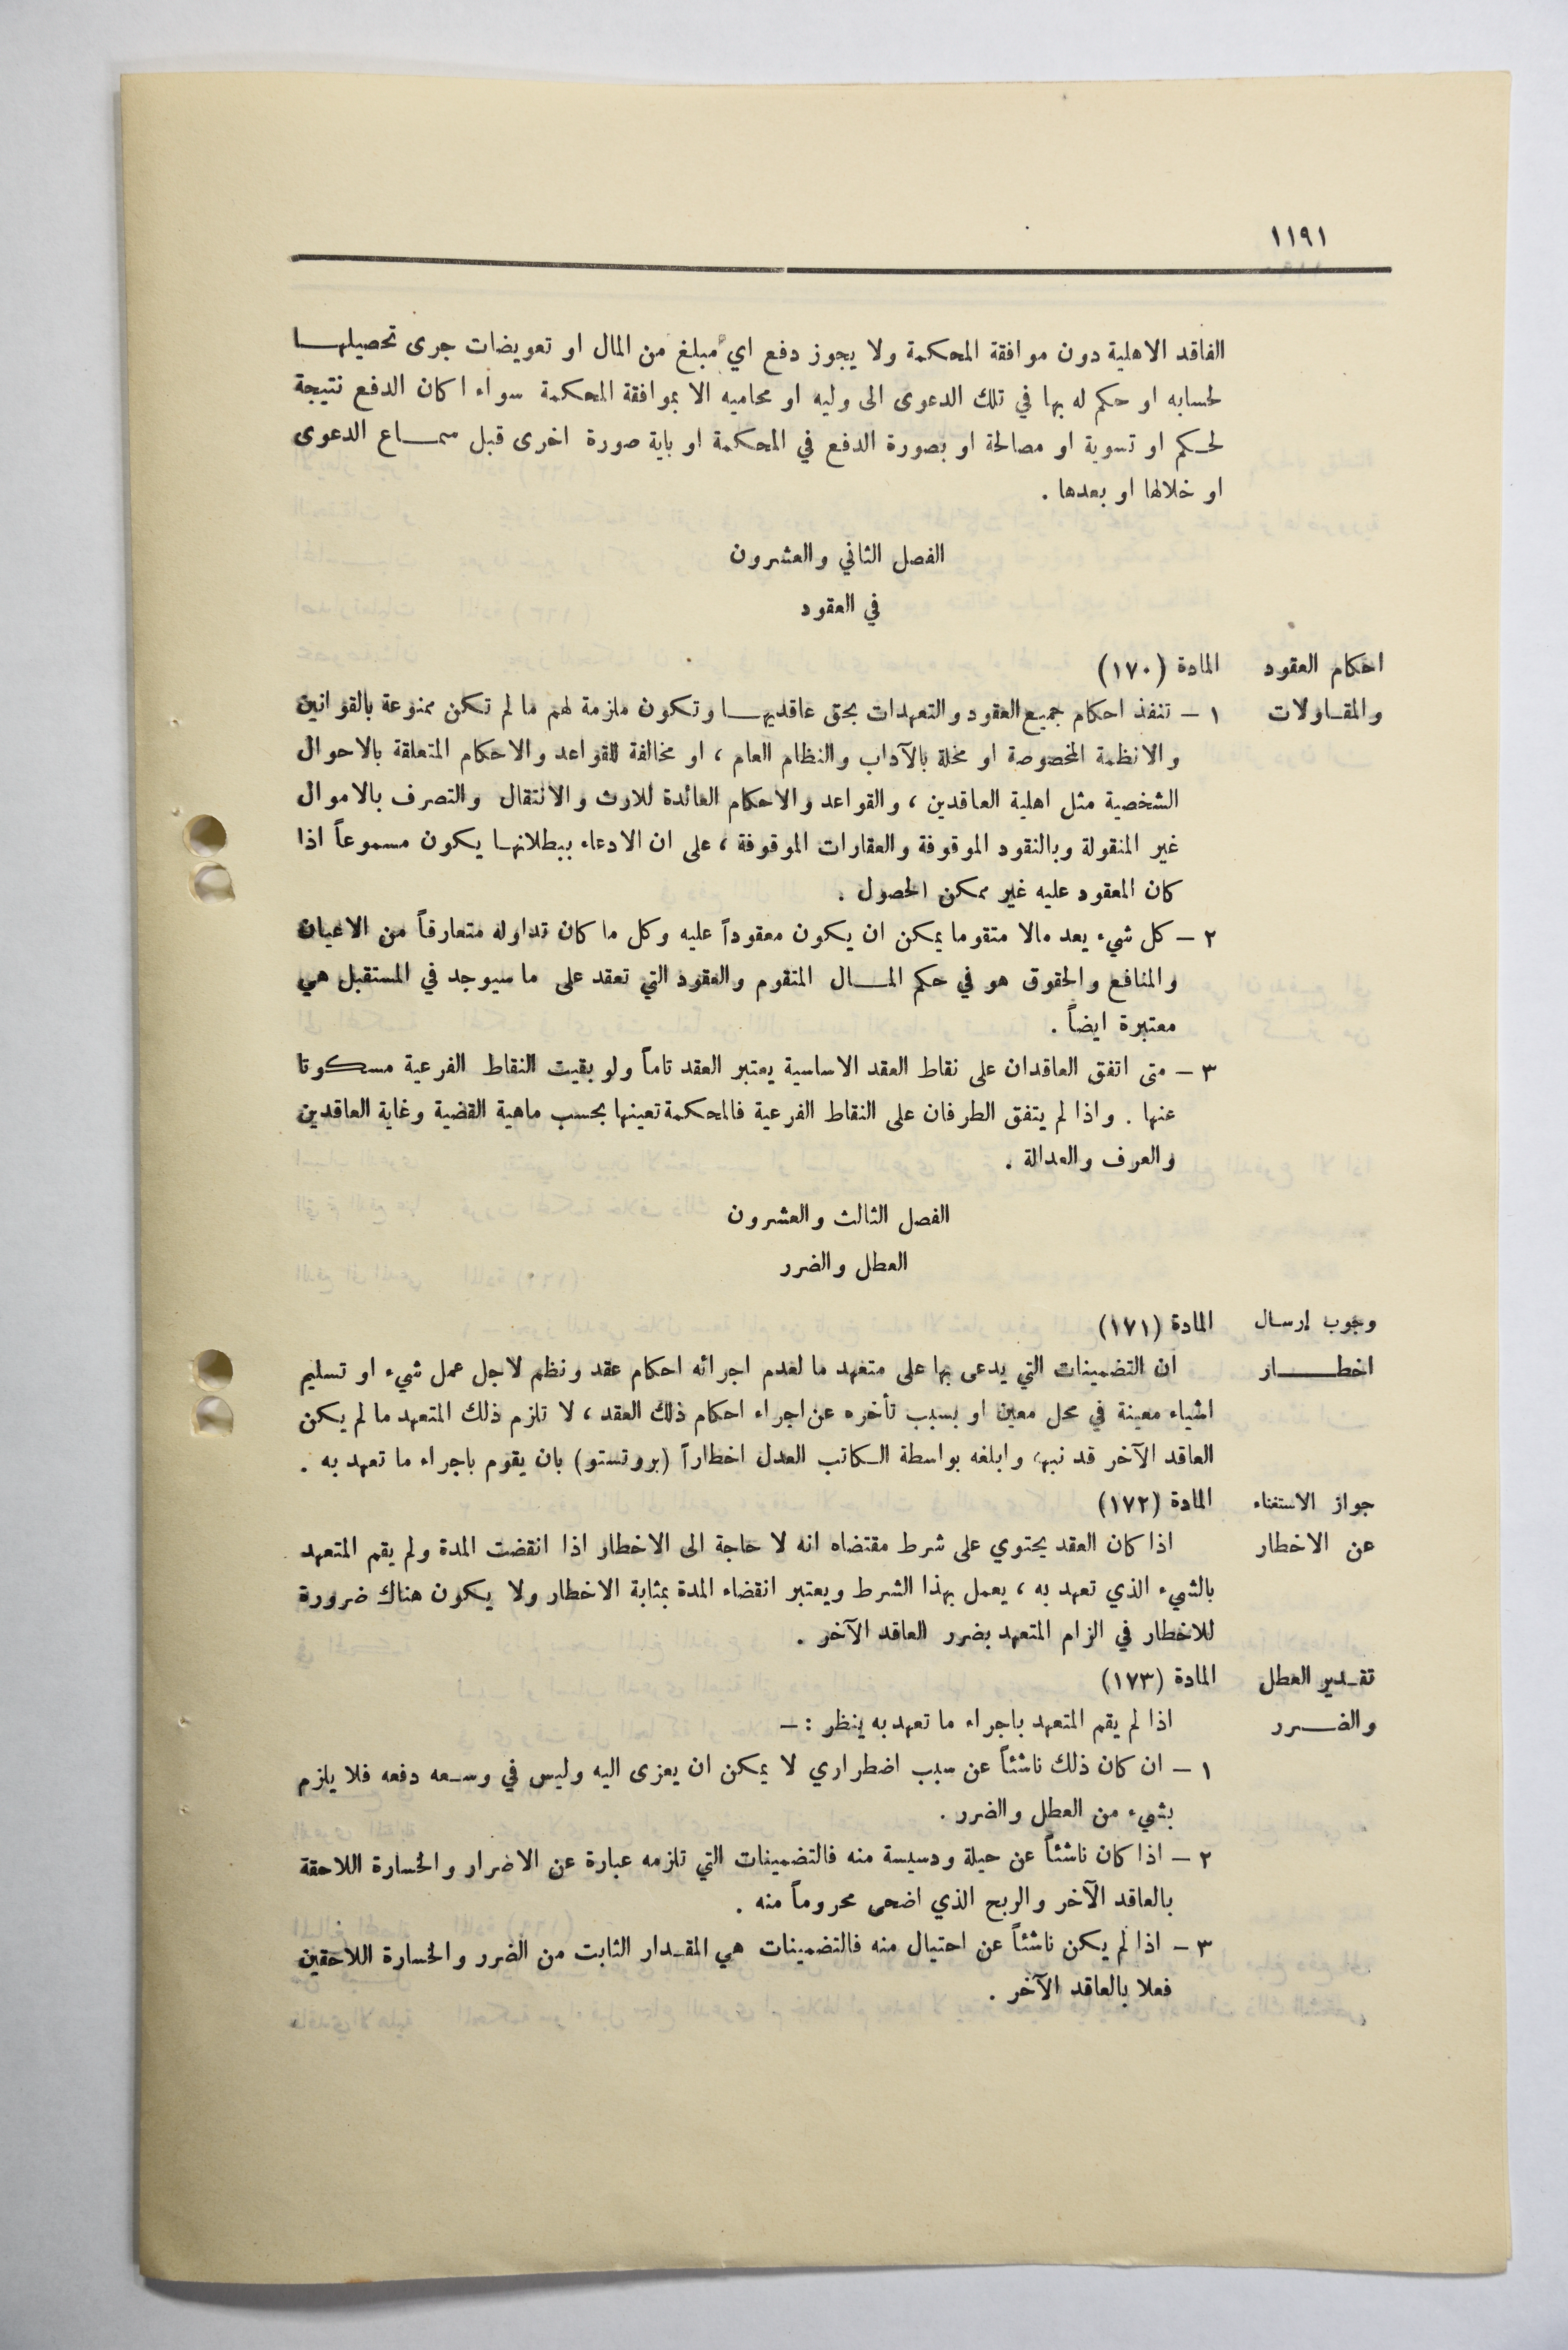 ١١٩١
الفاقد الاهلية دون موافقة المحكمة ولا يجوز دفع اي مبلغ من المال او تعويضات جرى تحصيلهـــا
لحسابه او حكم له بها في تلك الدعوى الى وليه او محاميه الا بموافقة المحكمة سواء اكان الدفع نتيجة
لحـكم او تسوية او مصالحة او بصورة الدفع في المحكمة او باية صورة اخرى قبل سمـــاع الدعوى
او خلالها او بعدها .
الفصل الثاني والعشرون
في العقود
احكام العقود المادة (١٧٠)
والمقـاولات ١ – تنفذ احكام جميع العقود والتعهدات بحق عاقديهـــا وتكون ملزمة لهم ما لم تكن ممنوعة بالقوانين
والانظمة المخصوصة او مخلة بالآداب والنظام العام ، او مخالفة للقواعد والاحكام المتعلقة بالاحوال
الشخصية مثل اهلية العاقدين ، والقواعد والاحكام العائدة للارث والانتقال والتصرف بالاموال
غير المنقولة وبالنقود الموقوفة والعقارات الموقوفة ، على ان الادعاء ببطلانهـا يكون مسموعاً اذا
كان المعقود عليه غير ممكن الحصول .
٢ – كل شيء يعد مالا متقوما يمكن ان يكون معقوداً عليه وكل ما كان تداوله متعارفاً من الاعيان
والمنافع والحقوق هو في حكم المـــال المتقوم والعقود التي تعقد على ما سيوجد في المستقبل هي
معتبرة ايضاً .
٣ – متى اتفق العاقدان على نقاط العقد الاساسية يعتبر العقد تاماً ولو بقيت النقاط الفرعية مسكوتا
عنها . واذا لم يتفق الطرفان على النقاط الفرعية فالمحكمة تعينها بحسب ماهية القضية وغاية العاقدين
والعرف والعدالة .
الفصل الثالث والعشرون
العطل والضرر
وجوب إرسال المادة (١٧١)
اخطـــــار ان التضمينات التي يدعى بها على متعهد ما لعدم اجرائه احكام عقد ونظم لاجل عمل شيء او تسليم
اشياء معينة في محل معين او بسبب تأخره عن اجراء احكام ذلك العقد ، لا تلزم ذلك المتعهد ما لم يكن
العاقد الآخر قد نبهه وابلغه بواسطة الـكاتب العدل اخطاراً (بروتستو) بان يقوم باجراء ما تعهد به .
جواز الاستغناء المادة (١٧٢)
عن الاخطار اذا كان العقد يحتوي على شرط مقتضاه انه لا حاجة الى الاخطار اذا انقضت المدة ولم يقم المتعهد
بالشيء الذي تعهد به ، يعمل بهذا الشرط ويعتبر انقضاء المدة بمثابة الاخطار ولا يكون هناك ضرورة
للاخطار في الزام المتعهد بضرر العاقد الآخر .
تقـدير العطل المادة (١٧٣)
والضـــرر اذا لم يقم المتعهد باجراء ما تعهد به ينظر : –
١ – ان كان ذلك ناشئاً عن سبب اضطراري لا يمكن ان يعزى اليه وليس في وسـعه دفعه فلا يلزم
بشيء من العطل والضرر .
٢ – اذا كان ناشئاً عن حيلة ودسيسة منه فالتضمينات التي تلزمه عبارة عن الاضرار والخسارة اللاحقة
بالعاقد الآخر والربح الذي اضحى محروماً منه .
٣ – اذا لم يكن ناشئاً عن احتيال منه فالتضمينات هي المقـدار الثابت من الضرر والخسارة اللاحقين
فعلا بالعاقد الآخر .